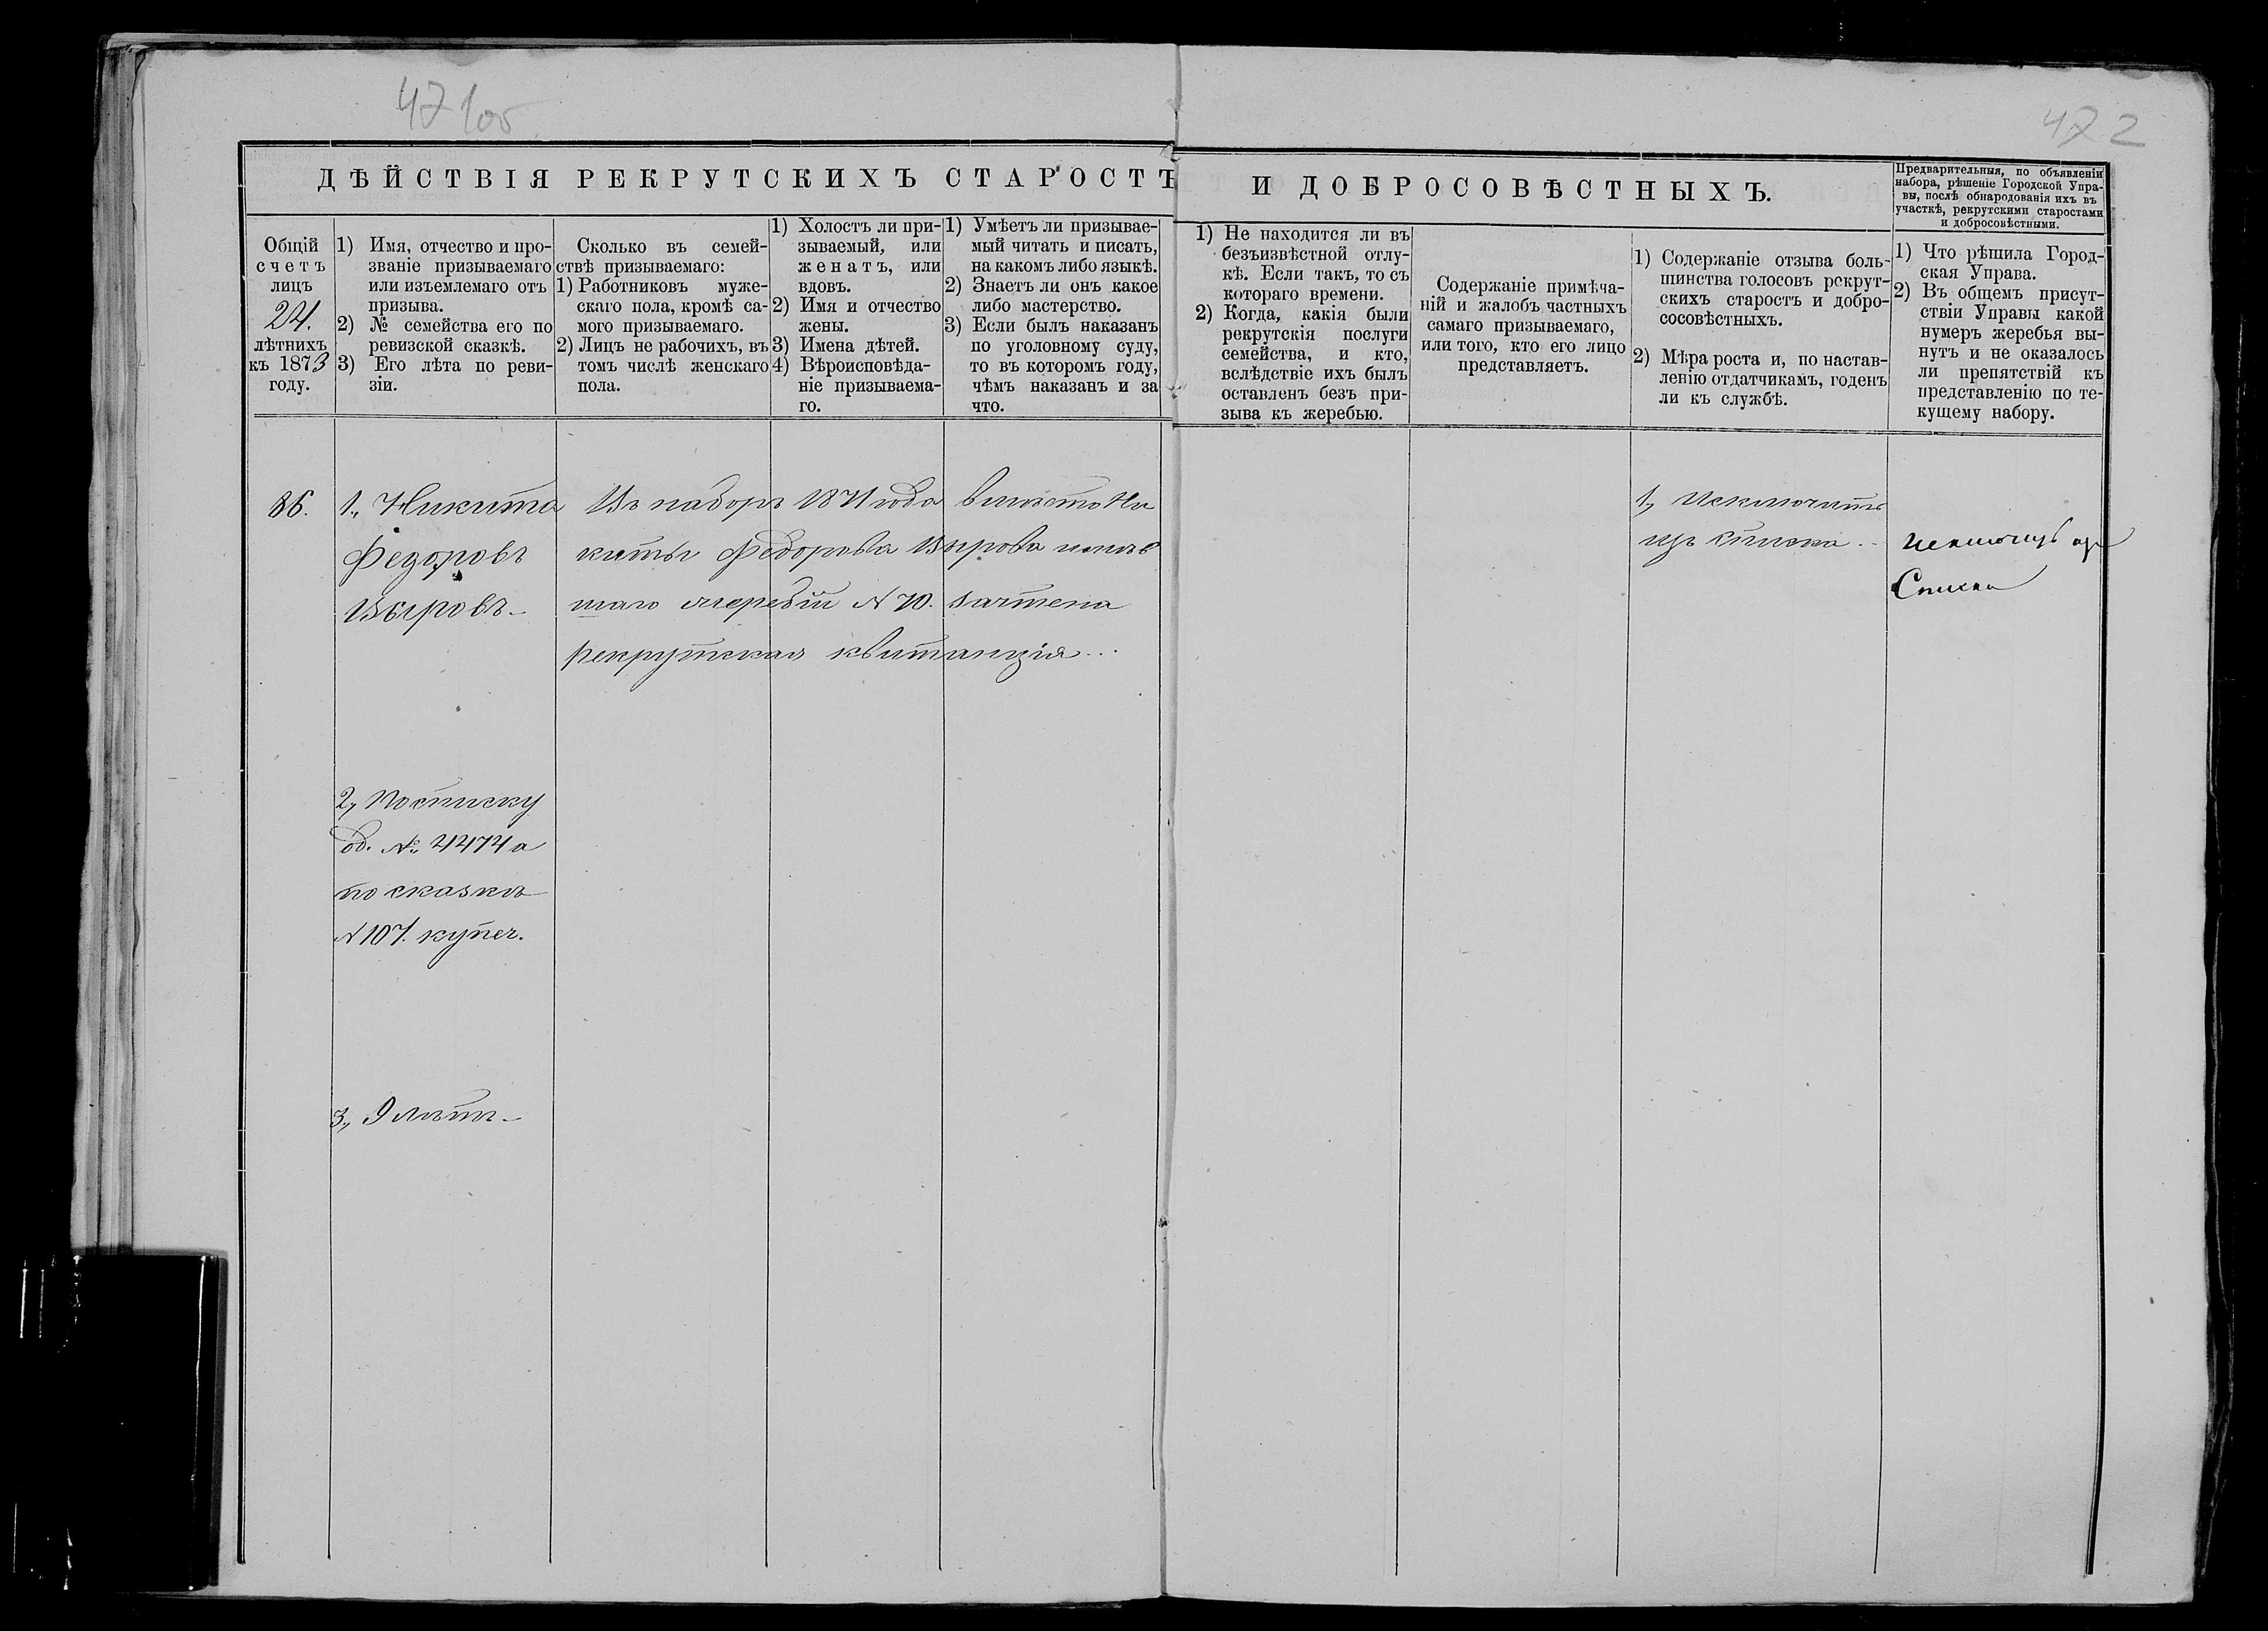 471об
472
ДѢЙСТВІЯ РЕКРУТСКИХЪ СТАРОСТЪ
И ДОБРОСОВѢСТНЫХЪ.
Предварительныя, по объявленіи
набора, рѣшеніе Городской Упра-
вы, послѣ обнародованія ихъ въ
участкѣ, рекрутскими старостами
и добросовѣстными.
Общій
счетъ
лицъ
24.
лѣтнихъ
къ 1873
году.
1) Имя, отчество и про-
званіе призываемаго
или изъемлемаго отъ
призыва.
2) № семейства его по
ревизской сказкѣ.
3) Его лѣта по реви-
зіи.
Сколько въ семей-
ствѣ призываемаго:
1) Работниковъ муже-
скаго пола, кромѣ са-
мого призываемаго.
2) Лицъ не рабочихъ, въ
томъ числѣ женскаго
пола.
1) Холостъ ли при-
зываемый, или
женатъ, или
вдовъ.
2) Имя и отчество
жены.
3) Имена дѣтей.
4) Вѣроисповѣда-
ніе призываема-
го.
1) Умѣетъ ли призывае-
мый читать и писать,
на какомъ либо языкѣ.
2) Знаетъ ли онъ какое
либо мастерство.
3) Если былъ наказанъ
по уголовному суду,
то въ которомъ году,
чѣмъ наказанъ и за
что.
1) Не находится ли въ
безъизвѣстной отлу-
кѣ. Если такъ, то съ
котораго времени.
2) Когда, какія были
рекрутскія послуги
семейства, и кто,
вслѣдствіе ихъ былъ
оставленъ безъ при-
зыва къ жеребью.
Содержаніе примѣча-
ній и жалобъ частныхъ
самаго призываемаго,
или того, кто его лицо
представляетъ.
1) Содержаніе отзыва боль-
шинства голосовъ рекрут-
скихъ старостъ и добро-
сосовѣстныхъ.
2) Мѣра роста и, по настав-
ленію отдатчикамъ, годенъ
ли къ службѣ.
1) Что рѣшила Город-
ская Управа.
2) Въ общемъ присут-
ствіи Управы какой
нумеръ жеребья вы-
нутъ и не оказалось
ли препятствій къ
представленію по те-
кущему набору.
86.
1., Никита
Федоровъ
Выровъ
Въ наборъ 1871 года вмѣсто Ни
киты Федорова Вырова имѣв
шаго жеребій № 70. зачтена
рекрутская квитанція...
1., Исключить
изъ списка..
исключить изъ
Списка
2., По списку
об. № 4474 а
по сказкѣ
№ 107. купеч.
3., 9 лѣтъ